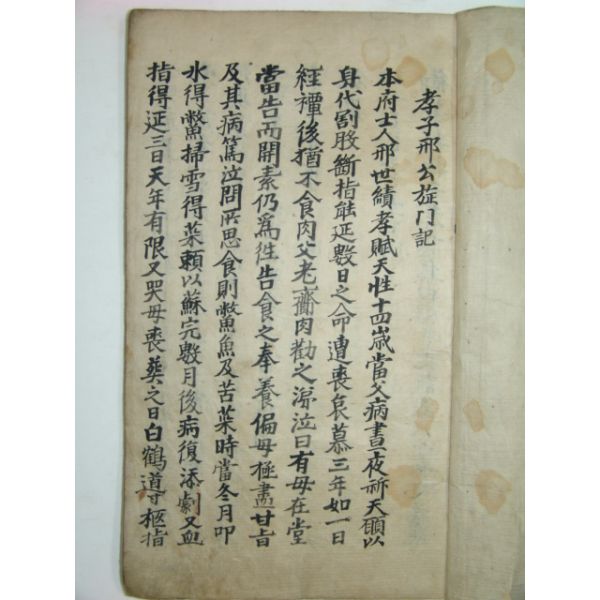 孝子邢公旋门記
本府士人邢世績孝賦天性十四歲當父病晝夜祈天願以
身代割股斷指能延數日之命遭喪哀慕三年如一日
經禫後猶不食肉父老齎肉勸之涕泣曰有母在堂
當告而開素仍爲徃告食之奉養偏母極盡甘旨
及其病篤泣問所思食則鱉魚及苦菜時當冬月叩
氷得鱉掃雪得菜賴以蘇完數月後病復添劇又血
指得延三日天年有限又哭母喪葬之日白鶴導柩指